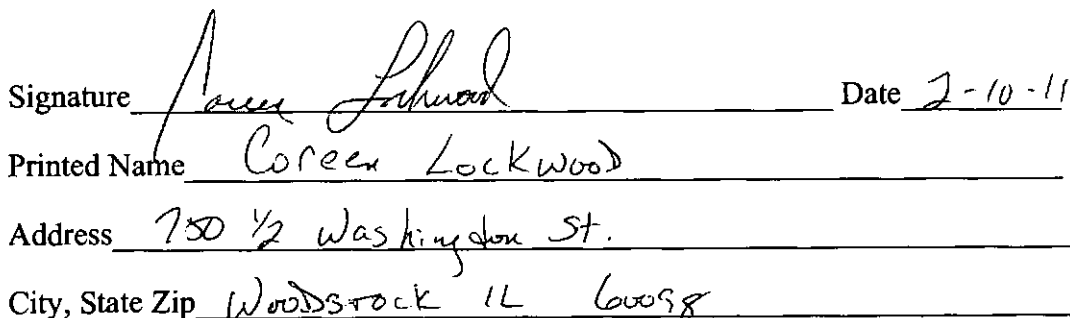 Signature Coreen Lockwood Date 2-10-11
Printed Name Coreen Lockwood
Address 750 1/2 Washington St.
City, State Zip Woodstock IL 60098